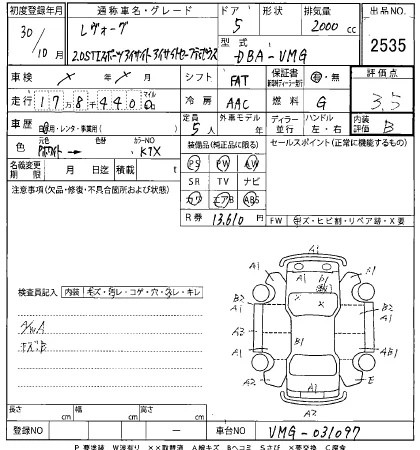 初度登録年月 通称車名・グレード ドア 形状 排気量 出品NO.
30/10月 レヴォーグ 5 2000cc
2.0STIスポーツアイサイト 型式 DBA-VMG 2535
車検 × 年 × 月 シフト FAT 保証書 有・無 評価点
走行 17万8千440 マイル Km 冷房 AAC 燃料 G 3.5
車歴 自家用・レンタ・事業用( ) 定員 5人 外車モデル 年 ディーラー 並行 ハンドル 左・右 内装評価 B
色 元色 Pホワイト 色替 カラーNO K1X
装備品(純正品に限る) セールスポイント(正常に機能するもの)
名義変更期限 月 日迄 積載 t
PS PW AW
注意事項(欠品・修復・不具合箇所および状態)
SR TV ナビ
カワ エアB ABS
R券 13,610
FW キズ・ヒビ割・リペア跡・X要
検査員記入 内装 キズ・汚レ・コゲ・穴・スレ・キレ
A/W.A
A1
A1 A1
B2 A1 B2 A1
A3 B1 A1
A1 AB1
A2 A1 E
A2
長さ cm 幅 cm 高さ cm
登録NO ー 車台NO VMG-031097
P 要塗装 W波有り ××取替済 A線キズ Bヘコミ Sさび ×要交換 C腐食